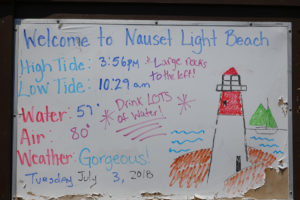 Welcome to Nauset Light Beach
High Tide: 3:56pm * Large rocks to the left!
Low Tide: 10:29am
Water: 57°
* Drink LOTS of Water! *
Air: 80°
Weather Gorgeous!
Tuesday July 3, 2018